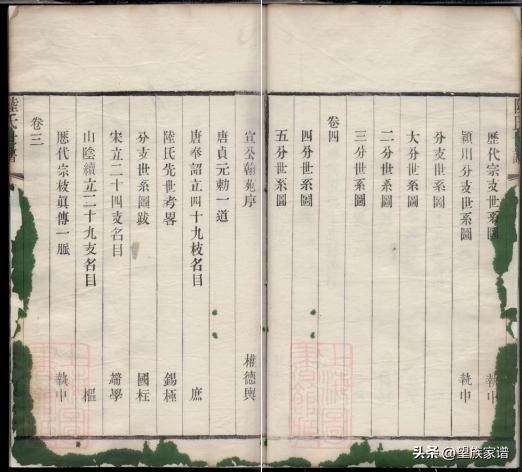 歷代宗支世系圖 執中
頴川分支世系圖 執中
分支世系圖
大分世系圖
二分世系圖
三分世系圖
卷四
四分世系圖
五分世系圖
宣公翰苑序 權德輿
唐貞元勅一道
唐奉詔立四十九枝名目 庶
陸氏先世考畧 錫極
分支世系圖跋 國
宋立二十四支名目 學
山陰續立二十九支名目 樞
歷代宗枝眞傳一脈 執中
卷三
陸氏 譜
头条 @望族家谱